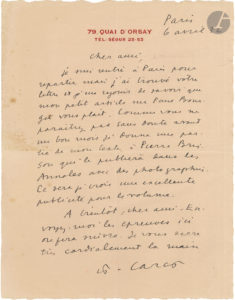 79, QUAI D'ORSAY
TÉL. SÉGUR 25-53
Paris
6 avril
Cher ami
je suis rentré à Paris pour
repartir mais j'ai trouvé votre
lettre et je me réjouis de savoir que
mon petit article sur
vous plait. Comme vous ne
paraitrez pas sans doute avant
un bon mois je donne une par-
tie de mon texte à Pierre Bris-
son qui le publiera dans les
Annales avec des photographies.
Ce sera je crois une excellente
publicité pour le volume.
A bientôt, cher ami. En-
voyez moi les épreuves ici
on fera suivre. Je vous serre
très cordialement la main
Carco